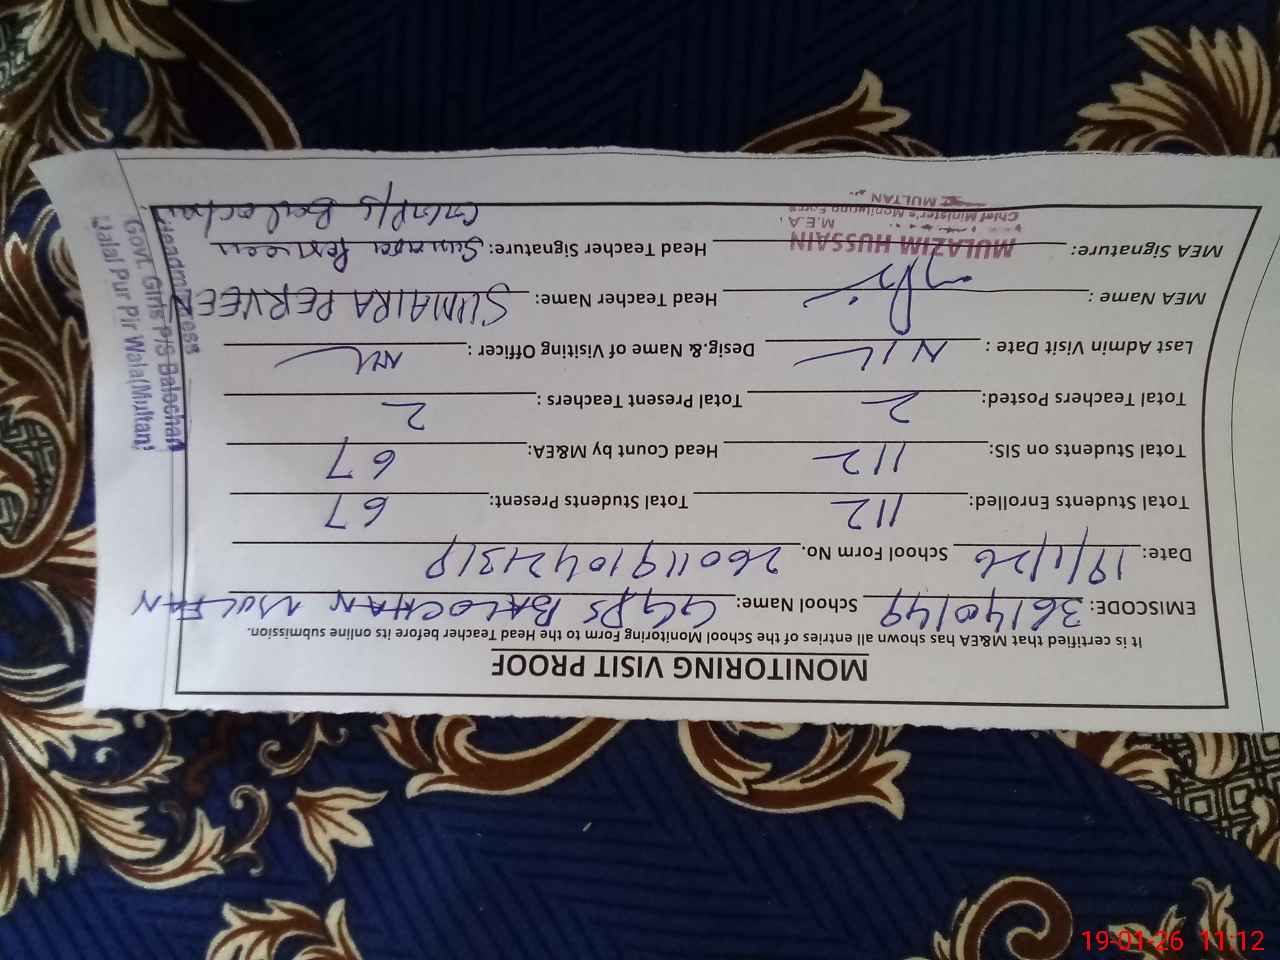 MONITORING VISIT PROOF
It is certified that M&EA has shown all entries of the School Monitoring Form to the Head Teacher before its online submission.
EMISCODE: 36140149 School Name: GGPS BALOCHAN MULTAN
Date: 19/1/26 School Form No. 
Total Students Enrolled: 112 Total Students Present: 67
Total Students on SIS: 112 Head Count by M&EA: 67
Total Teachers Posted: 2 Total Present Teachers : 2
Last Admin Visit Date : NIL Desig.& Name of Visiting Officer : NIL
MEA Name : Head Teacher Name: SUMAIRA PERVEEN
MEA Signature: Head Teacher Signature: Sumaira Perveen
MULAZIM HUSSAIN
M.E.A
Chief Minister's Monitoring Force
MULTAN
GGP/S Balochan
Headmistress
Govt. Girls P/S Balochan
Jalal Pur Pir Wala(Multan)
19-01-26 11:12